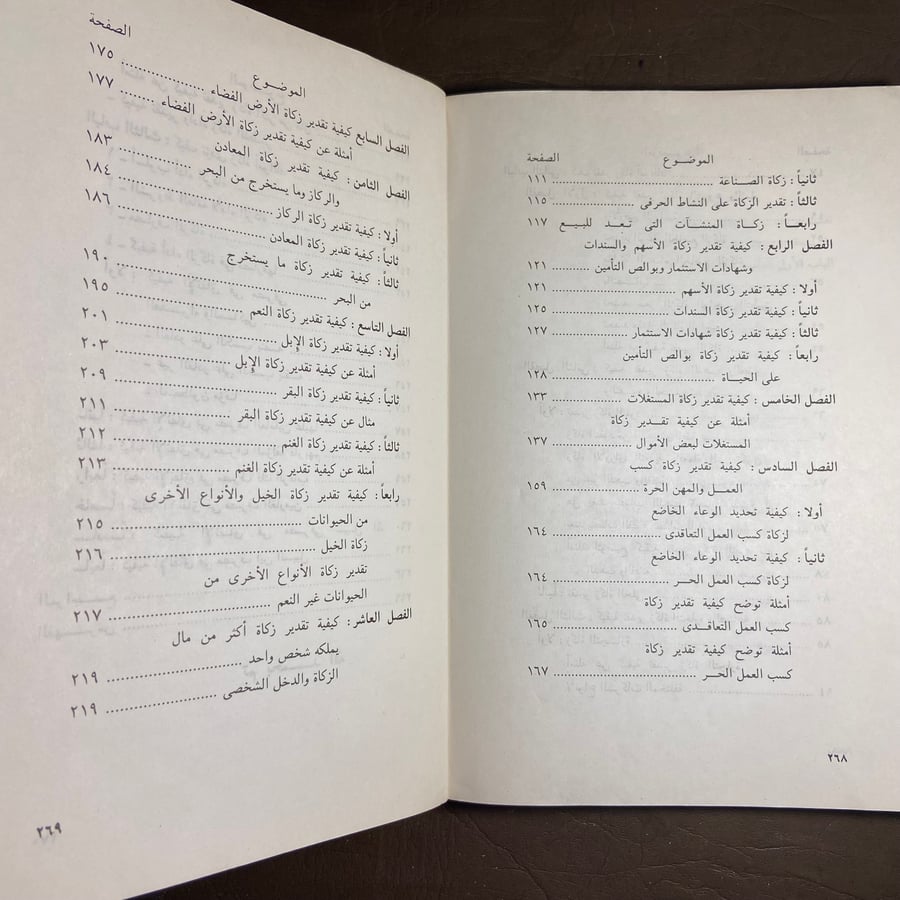 الموضوع الصفحة
ثانياً : زكاة الصناعة ١١١
ثالثاً : تقدير الزكاة على النشاط الحرفى ١١٥
رابعاً : زكاة المنشآت التى تعد للبيع ١١٧
الفصل الرابع : كيفية تقدير زكاة الأسهم والسندات
وشهادات الاستثمار وبوالص التأمين ١٢١
أولا : كيفية تقدير زكاة الأسهم ١٢١
ثانياً : كيفية تقدير زكاة السندات ١٢٥
ثالثاً : كيفية تقدير زكاة شهادات الاستثمار ١٢٧
رابعاً : كيفية تقدير زكاة بوالص التأمين
على الحياة ١٢٨
الفصل الخامس : كيفية تقدير زكاة المستغلات ١٣٣
أمثلة عن كيفية تقدير زكاة
المستغلات لبعض الأموال ١٣٧
الفصل السادس : كيفية تقدير زكاة كسب
العمل والمهن الحرة ١٥٩
أولا : كيفية تحديد الوعاء الخاضع
لزكاة كسب العمل التعاقدى ١٦٤
ثانياً : كيفية تحديد الوعاء الخاضع
لزكاة كسب العمل الحر ١٦٤
أمثلة توضح كيفية تقدير زكاة
كسب العمل التعاقدى ١٦٥
أمثلة توضح كيفية تقدير زكاة
كسب العمل الحر ١٦٧
٢٦٨
الموضوع الصفحة
الفصل السابع كيفية تقدير زكاة الأرض الفضاء ١٧٥
أمثلة عن كيفية تقدير زكاة الأرض الفضاء ١٧٧
الفصل الثامن : كيفية تقدير زكاة المعادن
والركاز وما يستخرج من البحر ١٨٣
أولا : كيفية تقدير زكاة الركاز ١٨٤
ثانياً : كيفية تقدير زكاة المعادن ١٨٦
ثالثاً : كيفية تقدير زكاة ما يستخرج
من البحر ١٩٠
الفصل التاسع : كيفية تقدير زكاة النعم ١٩٥
أولا : كيفية تقدير زكاة الإبل ٢٠١
أمثلة عن كيفية تقدير زكاة الإبل ٢٠٣
ثانياً : كيفية تقدير زكاة البقر ٢٠٩
مثال عن كيفية تقدير زكاة البقر ٢١١
ثالثاً : كيفية تقدير زكاة الغنم ٢١٢
أمثلة عن كيفية تقدير زكاة الغنم ٢١٣
رابعاً : كيفية تقدير زكاة الخيل والأنواع الأخرى
من الحيوانات ٢١٥
زكاة الخيل ٢١٦
تقدير زكاة الأنواع الأخرى من
الحيوانات غير النعم ٢١٧
الفصل العاشر : كيفية تقدير زكاة أكثر من مال
يملكه شخص واحد ٢١٩
الزكاة والدخل الشخصى ٢١٩
٢٦٩